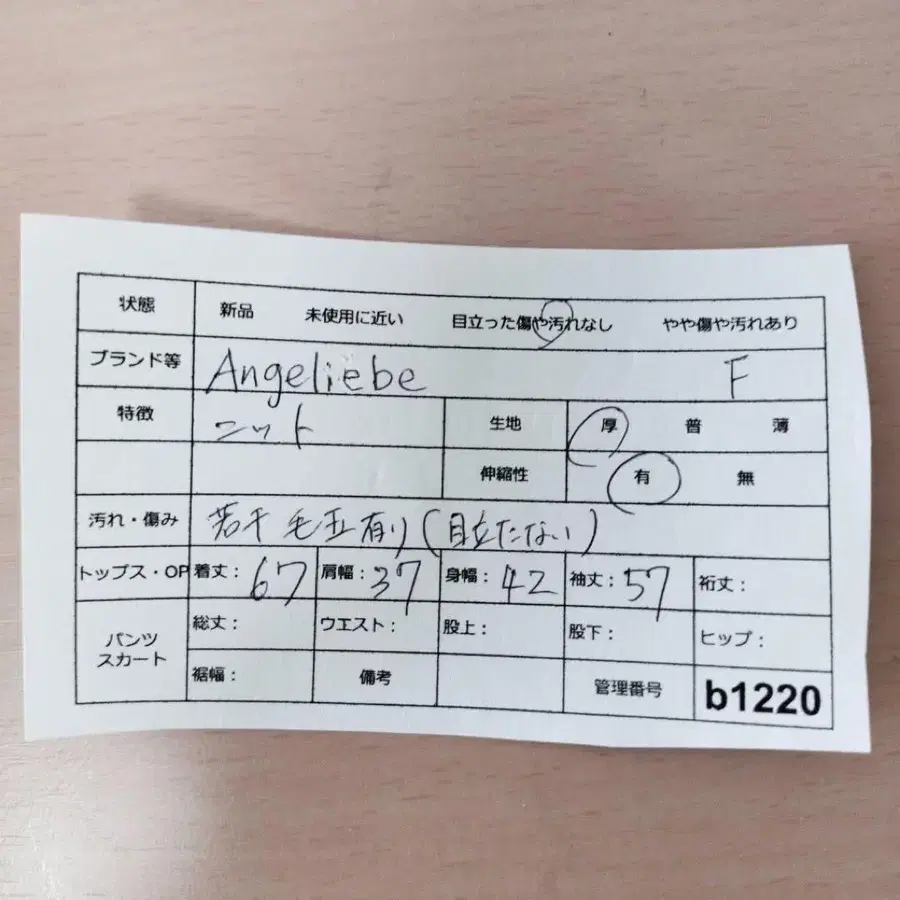 状態 新品 未使用に近い 目立った傷や汚れなし やや傷や汚れあり
ブランド等 Angeliebe F
特徴 ニット 生地 厚 普 薄
伸縮性 有 無
汚れ・傷み 若干毛玉有り(目立たない)
トップス・OP 着丈: 67 肩幅: 37 身幅: 42 袖丈: 57 裄丈:
パンツ スカート 総丈: ウエスト: 股上: 股下: ヒップ:
裾幅: 備考 管理番号 b1220